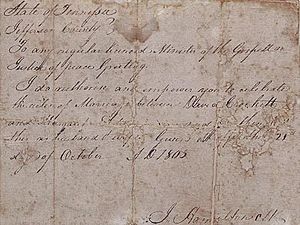 State of Tennessee
Jefferson County
To any regular licenced Minister of the Gospel or
Justice of Peace Greeting
I do authorise and empower you to celebrate
the rites of Marriage between David Crockett
and Margaret
this as husband & wife Given
day of October A D 1805
J Hamilton